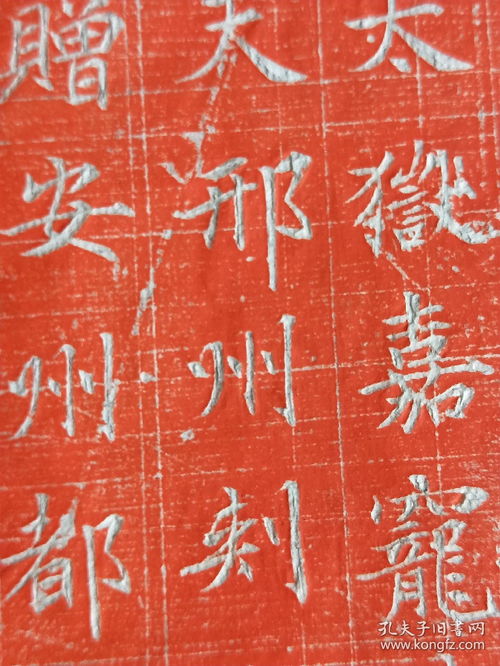 太嶽嘉寵
夫邢州刺
贈安州都
孔夫子旧书网
www.kongfz.com